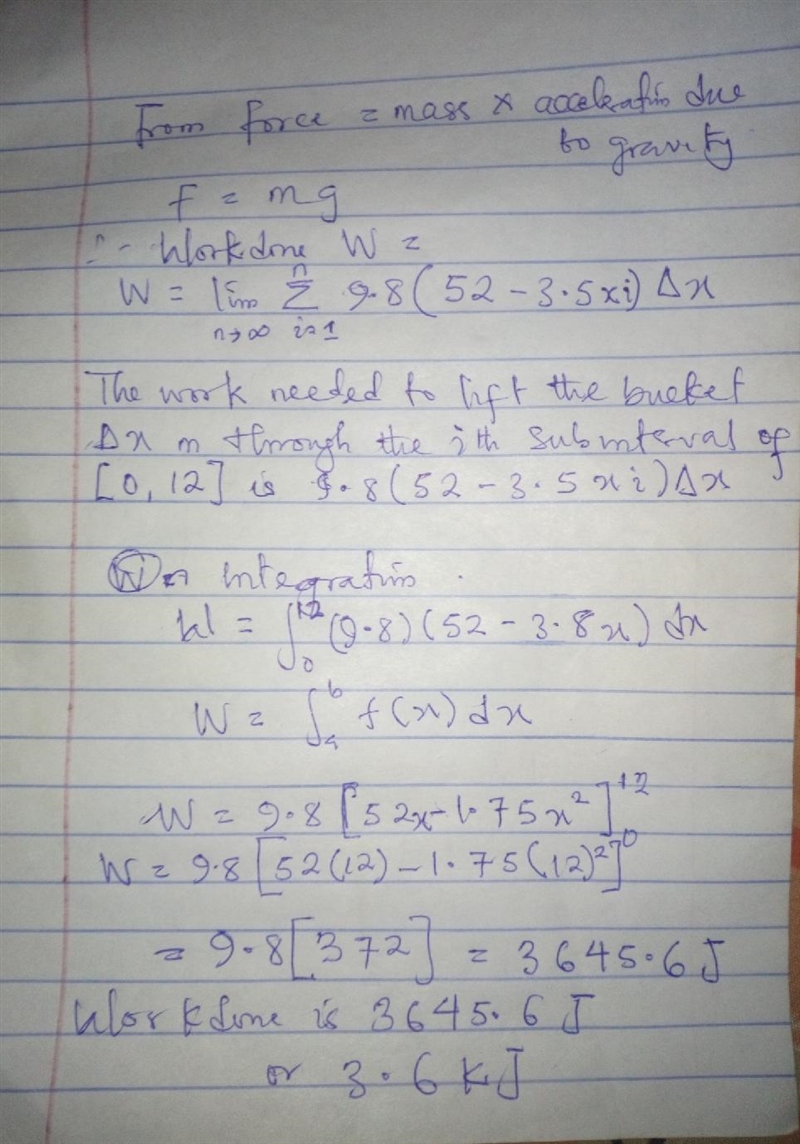 From force = mass × acceleration due
to gravity
F = mg
∴ Workdone W =
W = lim Σ 9.8(52 - 3.5xi) Δx
n→∞ i=1
n
The work needed to lift the bucket
Δx m through the ith subinterval of
[0, 12] is 9.8(52 - 3.5xi)Δx
integration.
W = ∫₀¹² (9.8)(52 - 3.8x) dx
W = ∫ₐᵇ f(x) dx
W = 9.8[52x - 1.75x²]¹²
W = 9.8[52(12) - 1.75(12)²]⁰
= 9.8[372] = 3645.6 J
Workdone is 3645.6 J
or 3.6 kJ